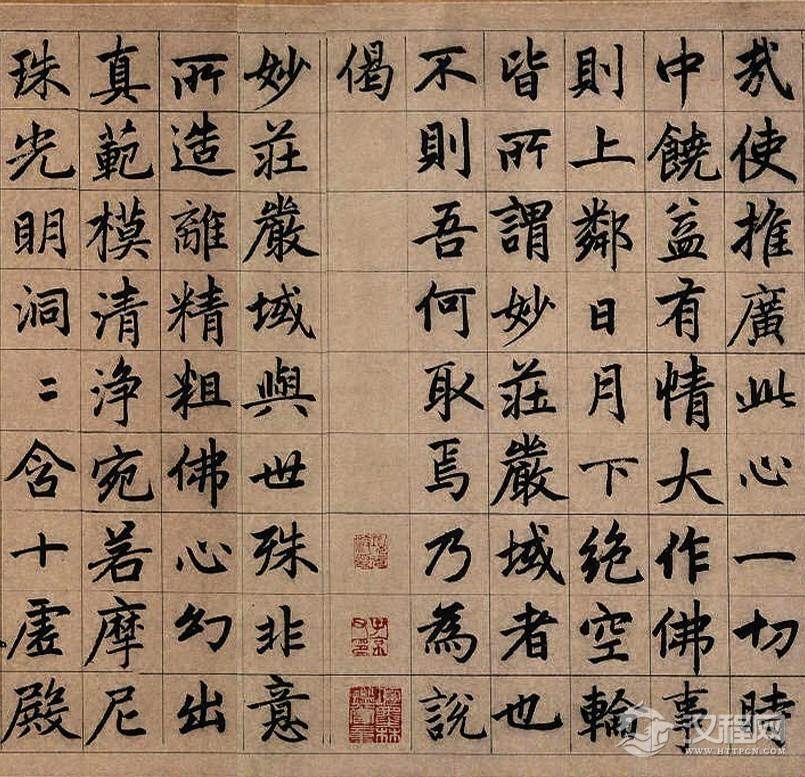 哉使推廣此心一切時
中饒益有情大作佛事
則上鄰日月下絶空輪
皆所謂妙莊嚴域者也
不則吾何取焉乃為說
偈
妙莊嚴域與世殊非意
所造離精粗佛心幻出
真範模清淨宛若摩尼
珠光明洞二含十虛殿
汉程网
WWW.HTTPCN.COM